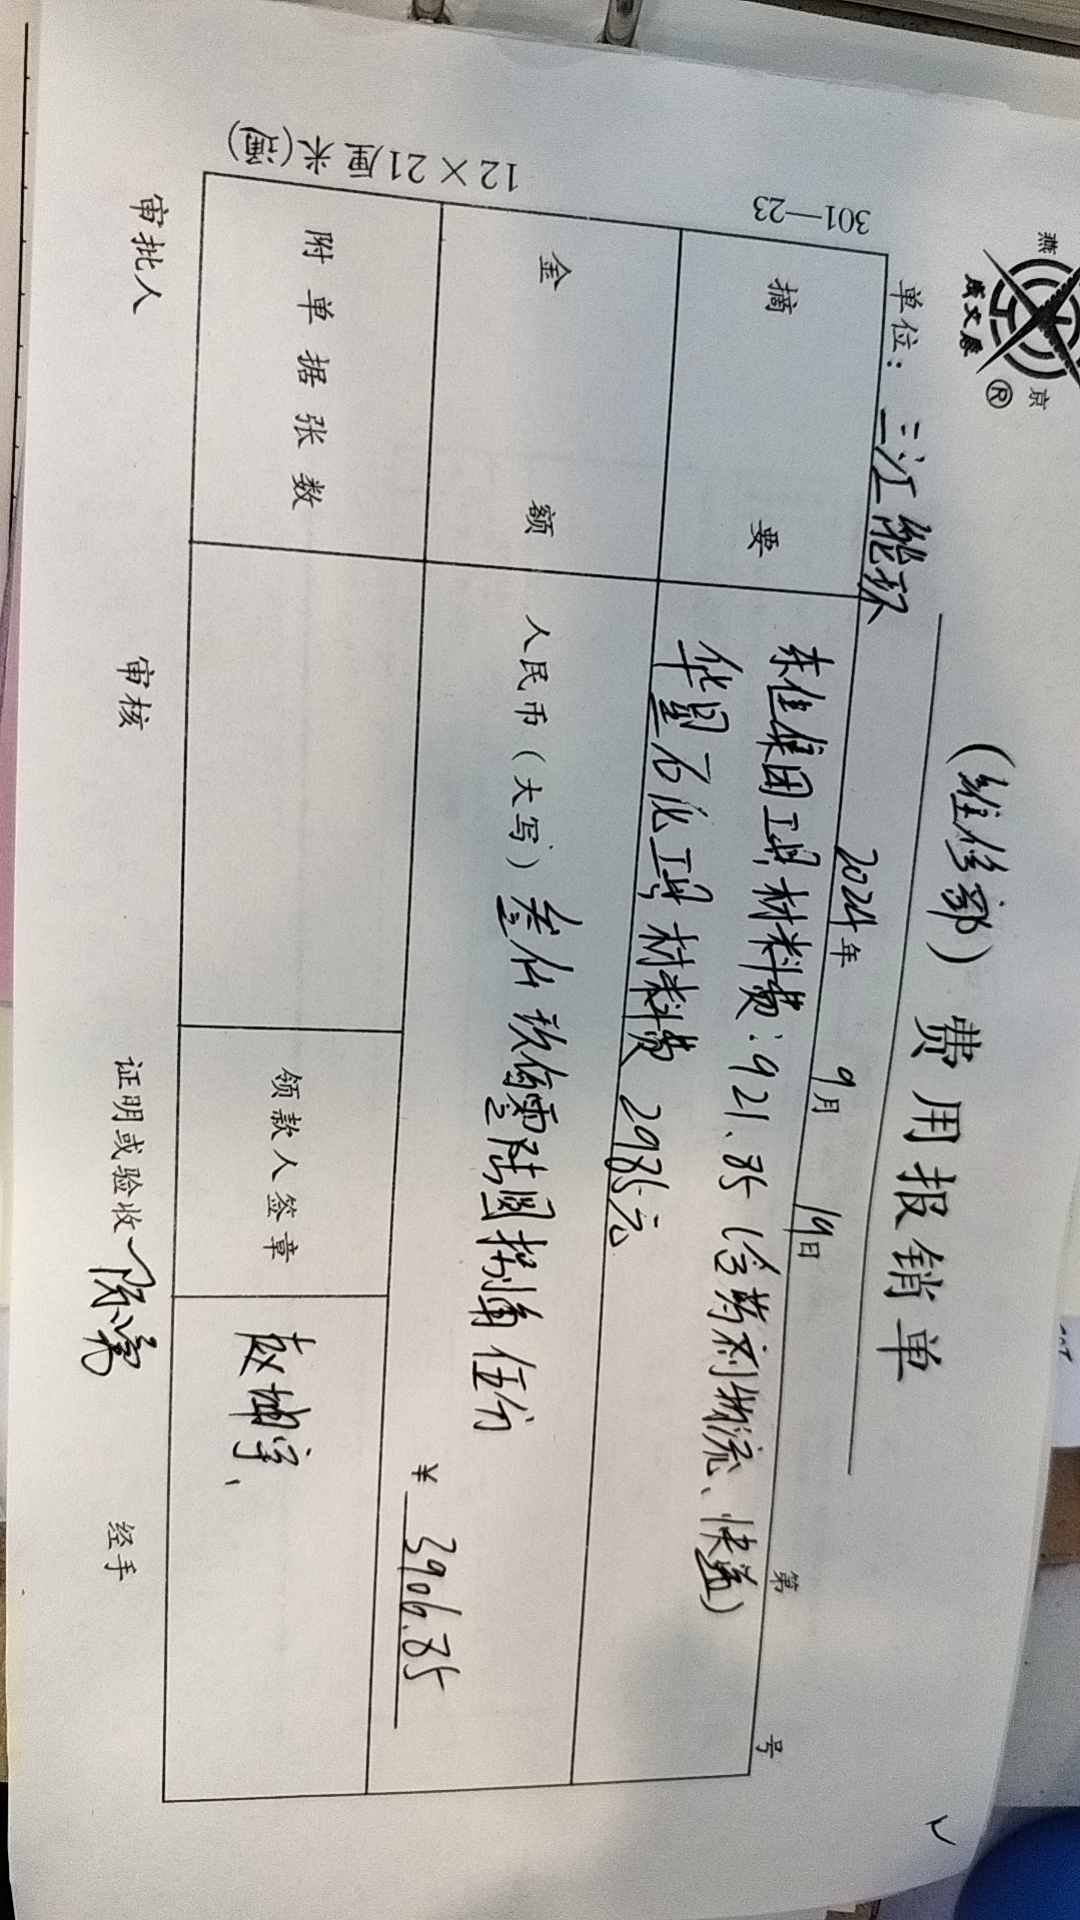 燕 京
成文厚 ®
(维修部) 费用报销单
单位: 三江能环 2024年 9月 19日 第 号
301—23
摘要 东佳集团工具,材料费:921.85 (含药剂物流、快递)
华星石化工具,材料费 2985元
金额 人民币(大写) 叁仟玖佰零陆圆捌角伍分
¥ 3906.85
附单据张数 领款人签章
12×21厘米(通)
审批人 审核 证明或验收 经手